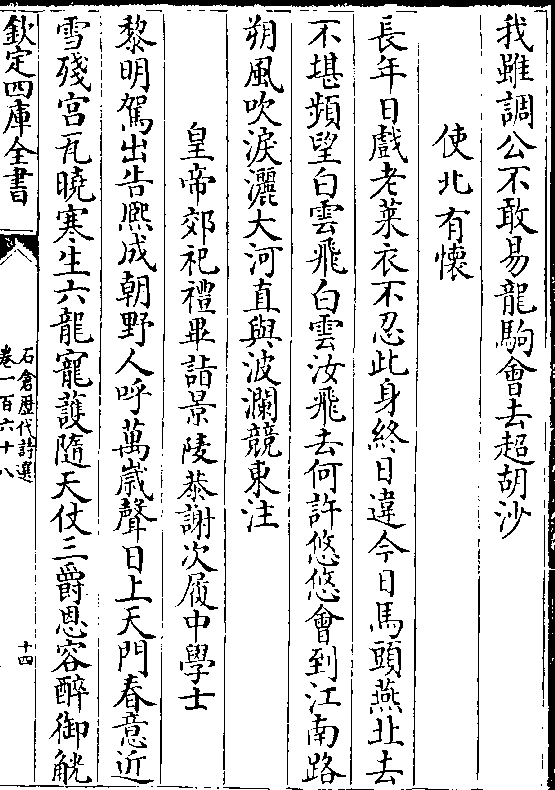 我雖調公不敢易龍駒會去超胡沙
使北有懷
長年日戲老萊衣不忍此身終日違今日馬頭燕北去
不堪頻望白雲飛白雲汝飛去何許悠悠會到江南路
朔風吹淚灑大河直與波瀾競東注
皇帝郊祀禮畢詣景陵恭謝次履中學士
黎明駕出告熈成朝野人呼萬嵗聲日上天門春意近
雪殘宫瓦曉寒生六龍寵䕶隨天仗三爵恩容醉御觥
欽定四庫全書
石倉歴代詩選
卷一百六十八
十四